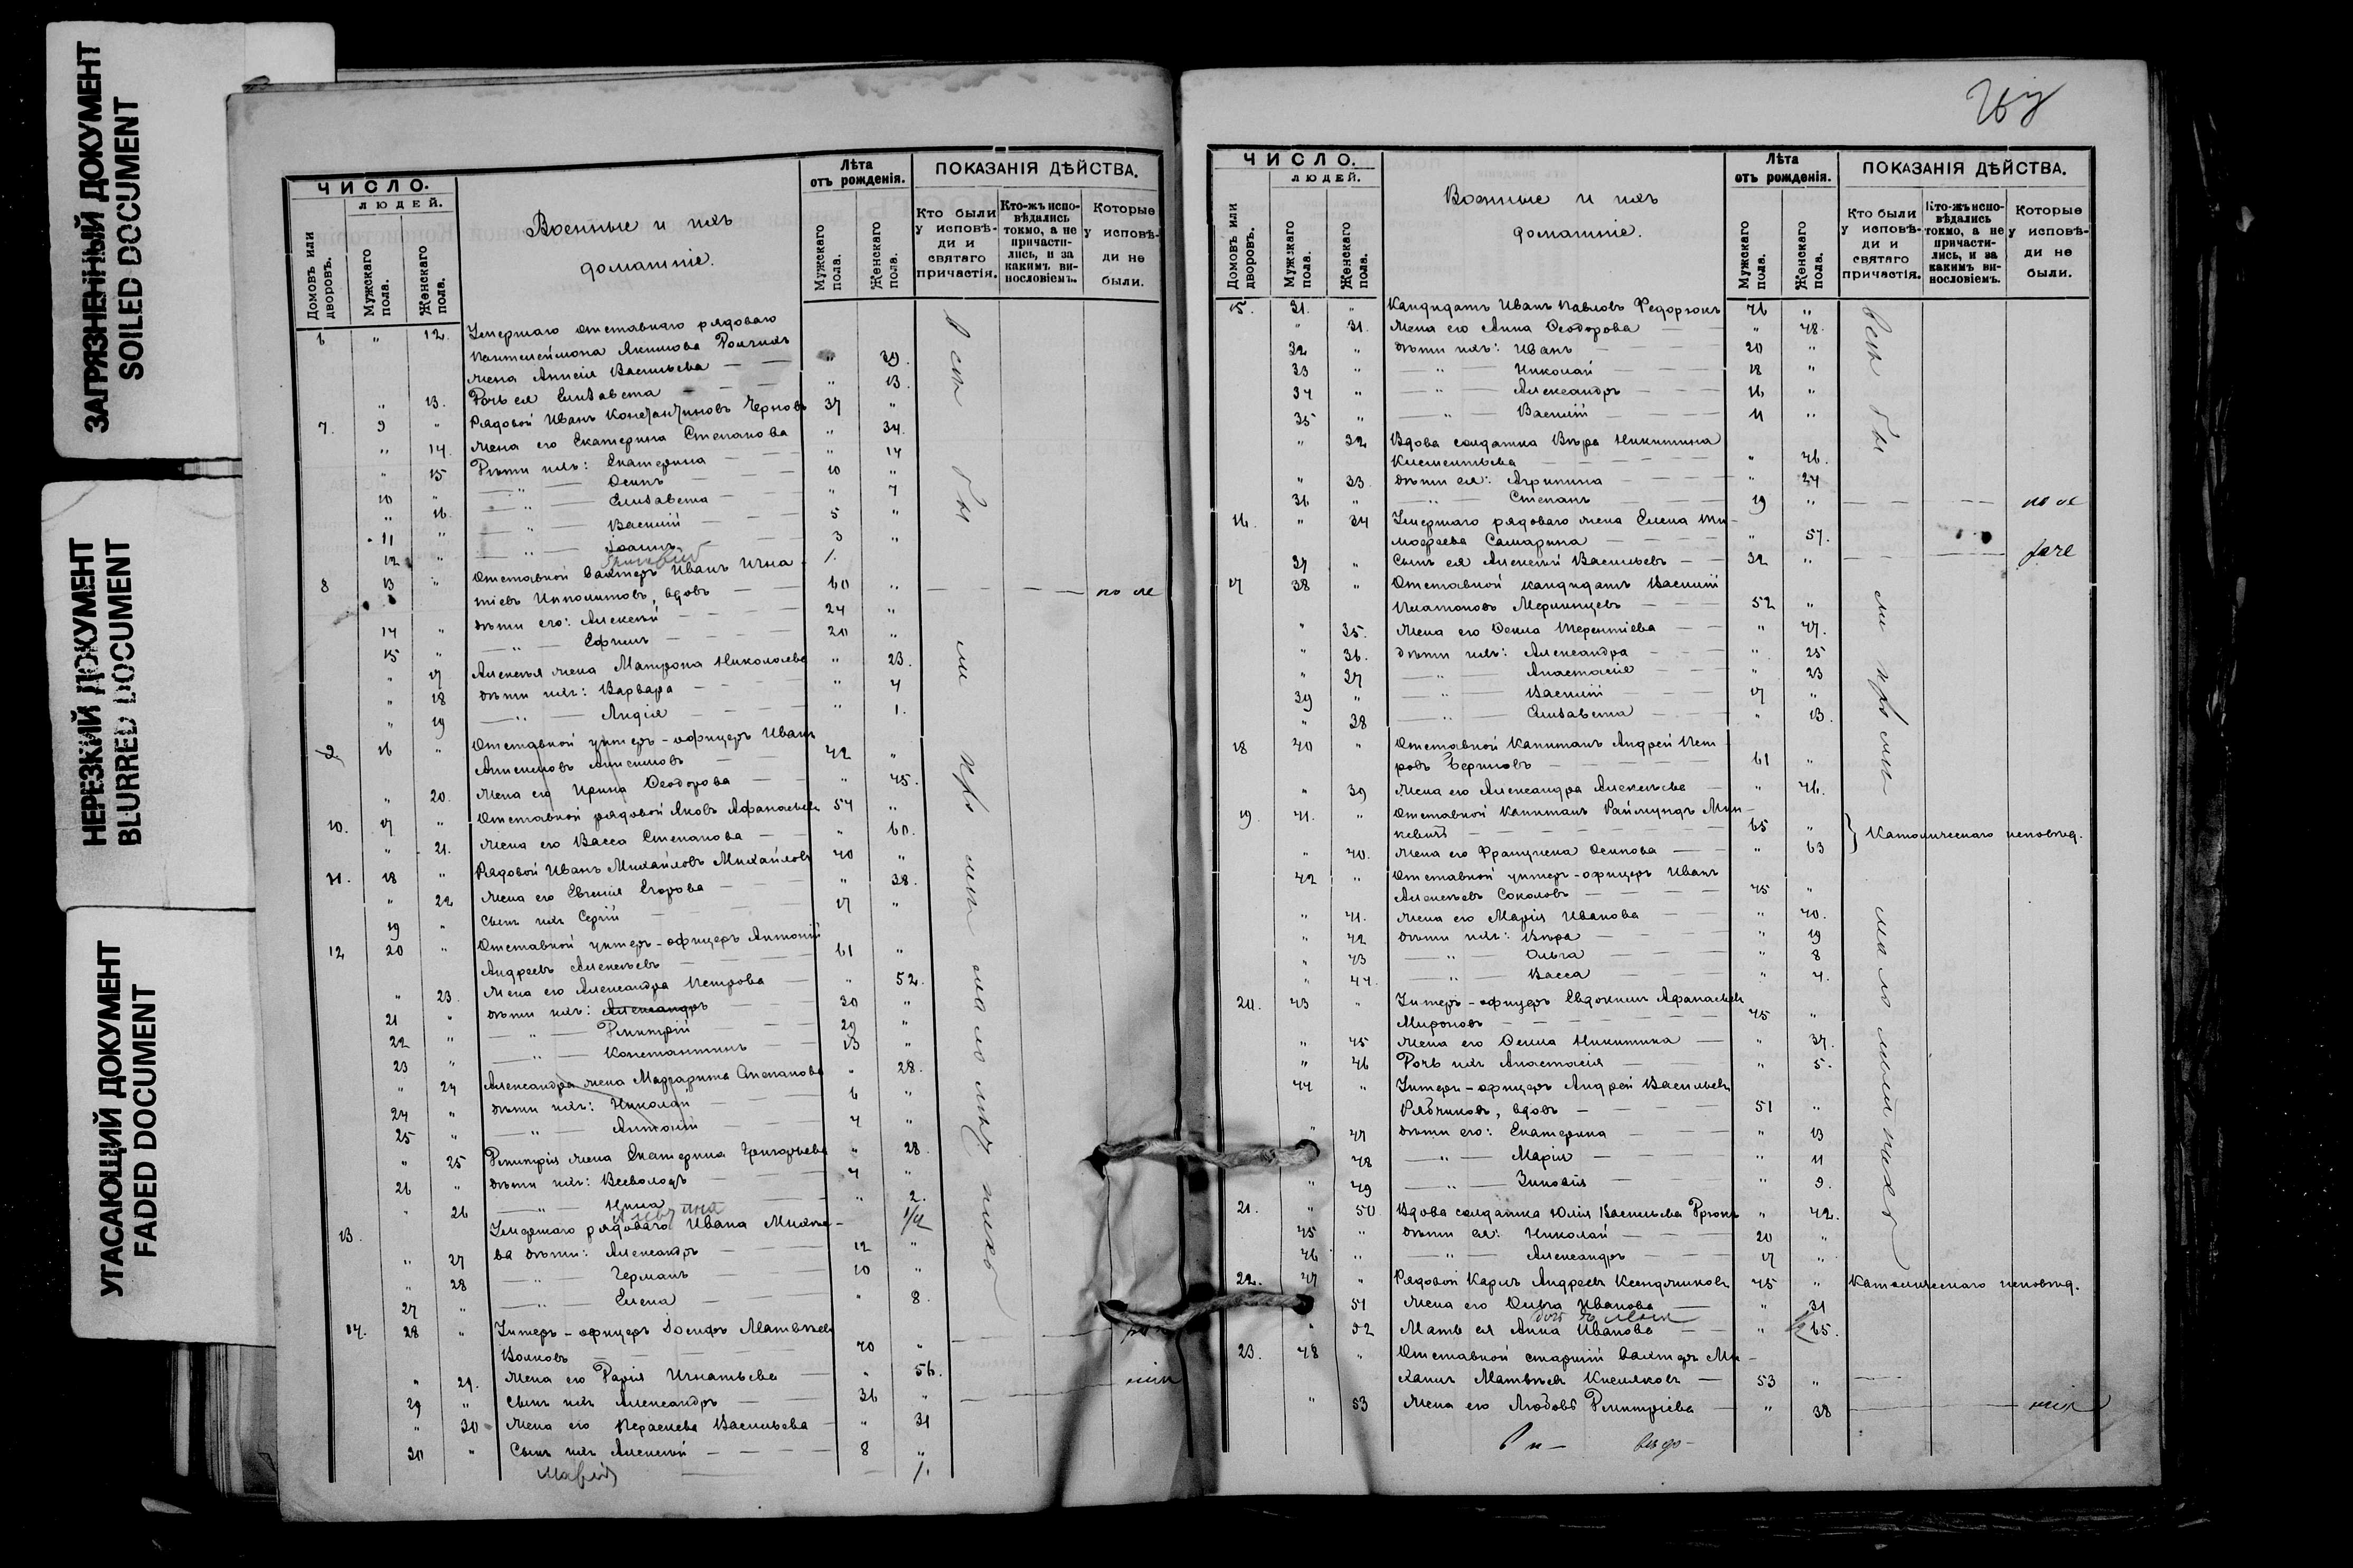 ЗАГРЯЗНЕННЫЙ ДОКУМЕНТ
SOILED DOCUMENT
НЕРЕЗКИЙ ДОКУМЕНТ
BLURRED DOCUMENT
УГАСАЮЩИЙ ДОКУМЕНТ
FADED DOCUMENT
ЧИСЛО.
ЛЮДЕЙ.
Домовъ или дворовъ.
Мужскаго пола.
Женскаго пола.
Военные и ихъ
домашніе.
Лѣта
отъ рожденія.
Мужскаго пола.
Женскаго пола.
ПОКАЗАНІЯ ДѢЙСТВА.
Кто были у исповѣди и святаго причастія.
Кто-жъ исповѣдались токмо, а не причастились, и за какимъ винословіемъ.
Которые у исповѣди не были.
6 " 12. Умершаго отставнаго рядоваго
Пантелеймона Якимова
жена Анисія Васильева — " 39.
" 13. Дочь ея Елизавета — " 13.
7. 9 " Рядовой Иванъ Константиновъ Черновъ 37 "
" 14. Жена его Екатерина Степанова " 34.
" 15 Дѣти ихъ: Екатерина — " 14
10 " — " — Осипъ — 10 "
" 16 — " — Елизавета — " 7
11 " — " — Василій — 5 "
12 " — " — Іоаннъ 3 "
8 13 " Отставной вахтеръ Иванъ Игна-
тіевъ Ипполитовъ, вдовъ — 60 "
14 " Дѣти его: Алексѣй — 24 "
15 " — " — Ефимъ — 20 "
" 17 Алексѣя жена Матрона Николаева " 23.
" 18 Дѣти ихъ: Варвара — " 4
" 19 — " — Лидія — " 1.
9 16 " Отставной унтеръ-офицеръ Иванъ
Анисимовъ Анисимовъ — 42 "
" 20. Жена его Ирина Ѳеодорова — " 45.
10. 17 " Отставной рядовой Яковъ Афанасьевъ 54 "
" 21. Жена его Васса Степанова — " 60.
11. 18 " Рядовой Иванъ Михайловъ Михайловъ 40 "
" 22 Жена его Евгенія Егорова — " 38.
19 " Сынъ ихъ Сергій — 17 "
12 20 " Отставной унтеръ-офицеръ Антоній
Андреевъ Алексѣевъ — 61 "
" 23. Жена его Александра Петрова — " 52.
21 " Дѣти ихъ: Александръ 30 "
22 " — " — Димитрій — 29 "
23 " — " — Константинъ — 13 "
" 24 Александра жена Маргарита Степанова " 28.
24 " Дѣти ихъ: Николай — 6 "
25 " — " — Антоній — 4 "
" 25 Димитрія жена Екатерина Григорьева " 28.
26 " Дѣти ихъ: Всеволодъ — 4 "
" 26 — " — Нина — " 2.
13. Умершаго рядоваго Ивана
ва дѣти: Александръ — 12 "
" 27
" 28 — " — Германъ — 10 "
27 " — " — Елена — " 8.
14. 28 " Унтеръ-офицеръ Іосифъ Матвѣевъ
Волковъ — 70 "
" 29. Жена его Дарія Игнатьева — " 56.
29 " Сынъ ихъ Александръ — 36 "
" 30 Жена его Параскева Васильева — " 31
30 " Сынъ ихъ Алексѣй — 8 "
Марія — 1.
ЧИСЛО.
ЛЮДЕЙ.
Домовъ или дворовъ.
Мужскаго пола.
Женскаго пола.
Военные и ихъ
домашніе.
Лѣта
отъ рожденія.
Мужскаго пола.
Женскаго пола.
ПОКАЗАНІЯ ДѢЙСТВА.
Кто были у исповѣди и святаго причастія.
Кто-жъ исповѣдались токмо, а не причастились, и за какимъ винословіемъ.
Которые у исповѣди не были.
15. 31. " Кандидатъ Иванъ Павловъ Федорюкъ 46 "
" 31. Жена его Анна Ѳеодорова — " 48.
32 " Дѣти ихъ: Иванъ — 20 "
33 " — " — Николай — 18 "
34 " — " — Александръ — 16 "
35 " — " — Василій — 11 "
" 32 Вдова солдатка Вѣра Никитина
Клементьева — " 46.
" 33. Дѣти ея: Агрипина — " 24
36 " — " — Степанъ — 19 "
16. " 34 Умершаго рядоваго жена Елена Ти-
мофеева Самарина — " 57.
37 " Сынъ ея Алексѣй Васильевъ — 32 "
17 38 " Отставной кандидатъ Василій
Платоновъ Мерлинцевъ — 52 "
" 35. Жена его Ѳекла Терентіева — " 47.
" 36. Дѣти ихъ: Александра — " 25
" 37 — " — Анастасія — " 23
39 " — " — Василій — 17 "
" 38 — " — Елизавета — " 13.
18 40 " Отставной капитанъ Андрей Пет-
ровъ — 61 "
" 39 Жена его Александра Алексѣева — " 46.
19. 41. " Отставной капитанъ Раймундъ
кевичъ — 65 "
" 40. Жена его Франциска Осипова — " 63
Католическаго исповѣд.
42 " Отставной унтеръ-офицеръ Иванъ
Алексѣевъ Соколовъ — 45 "
" 41. Жена его Марія Иванова — " 40.
" 42 Дѣти ихъ: Вѣра — " 19
" 43 — " — Ольга — " 8
" 44. — " — Васса — " 4.
20. 43 " Унтеръ-офицеръ Евдокимъ Афанасьевъ
Мироновъ — 45 "
" 45 Жена его Ѳекла Никитина — " 37.
" 46 Дочь ихъ Анастасія — " 5.
44 " Унтеръ-офицеръ Андрей Васильевъ
Рябчиковъ, вдовъ — 51 "
" 47 Дѣти его: Екатерина — " 13
48 — " — Марія — " 11
" 49 — " — Зиновія — " 9.
21. " 50 Вдова солдатка Юлія Васильева " 42.
45 " Дѣти ея: Николай — 20 "
46 " — " — Александръ — 17 "
22. 47 " Рядовой Карлъ Андреевъ 45 " Католическаго исповѣд.
51 Жена его Ольга Иванова — " 31
52 Мать ея Анна Иванова — " 65.
23. 48 " Отставной старшій вахтеръ Ми-
хаилъ Матвѣевъ Кисляковъ — 53 "
" 53 Жена его Любовь Димитріева — " 38